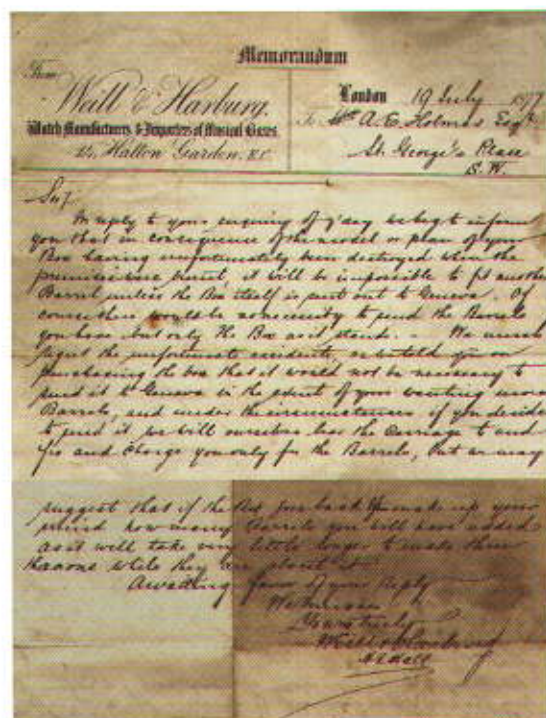 Memorandum
From
Weill & Harburg,
Watch Manufacturers & Importers of Musical Boxes.
14, Hatton Garden, E.C.
London 19 July 1877
To A. E. Holmes Esqre
St. George's Place
S.W.
Sir,
In reply to your enquiry of y'day we beg to inform
you that in consequence of the model or plan of your
Box having unfortunately been destroyed when the
premises were burnt, it will be impossible to fit another
Barrel unless the Box itself is sent out to Geneva. Of
course there would be no necessity to send the Barrels
you have, but only the Box as it stands. We much
regret the unfortunate accident, as we told you on
purchasing the box that it would not be necessary to
send it to Geneva in the event of your wanting more
Barrels, and under the circumstances if you decide
to send it, we will ourselves bear the Carriage to and
fro and charge you only for the Barrels, but we may
suggest that if the Box goes back you make up your
mind how many Barrels you will have added
as it will take very little longer to make three
than one while they are about it.
Awaiting favor of your reply
We remain
Yours truly
Weill & Harburg